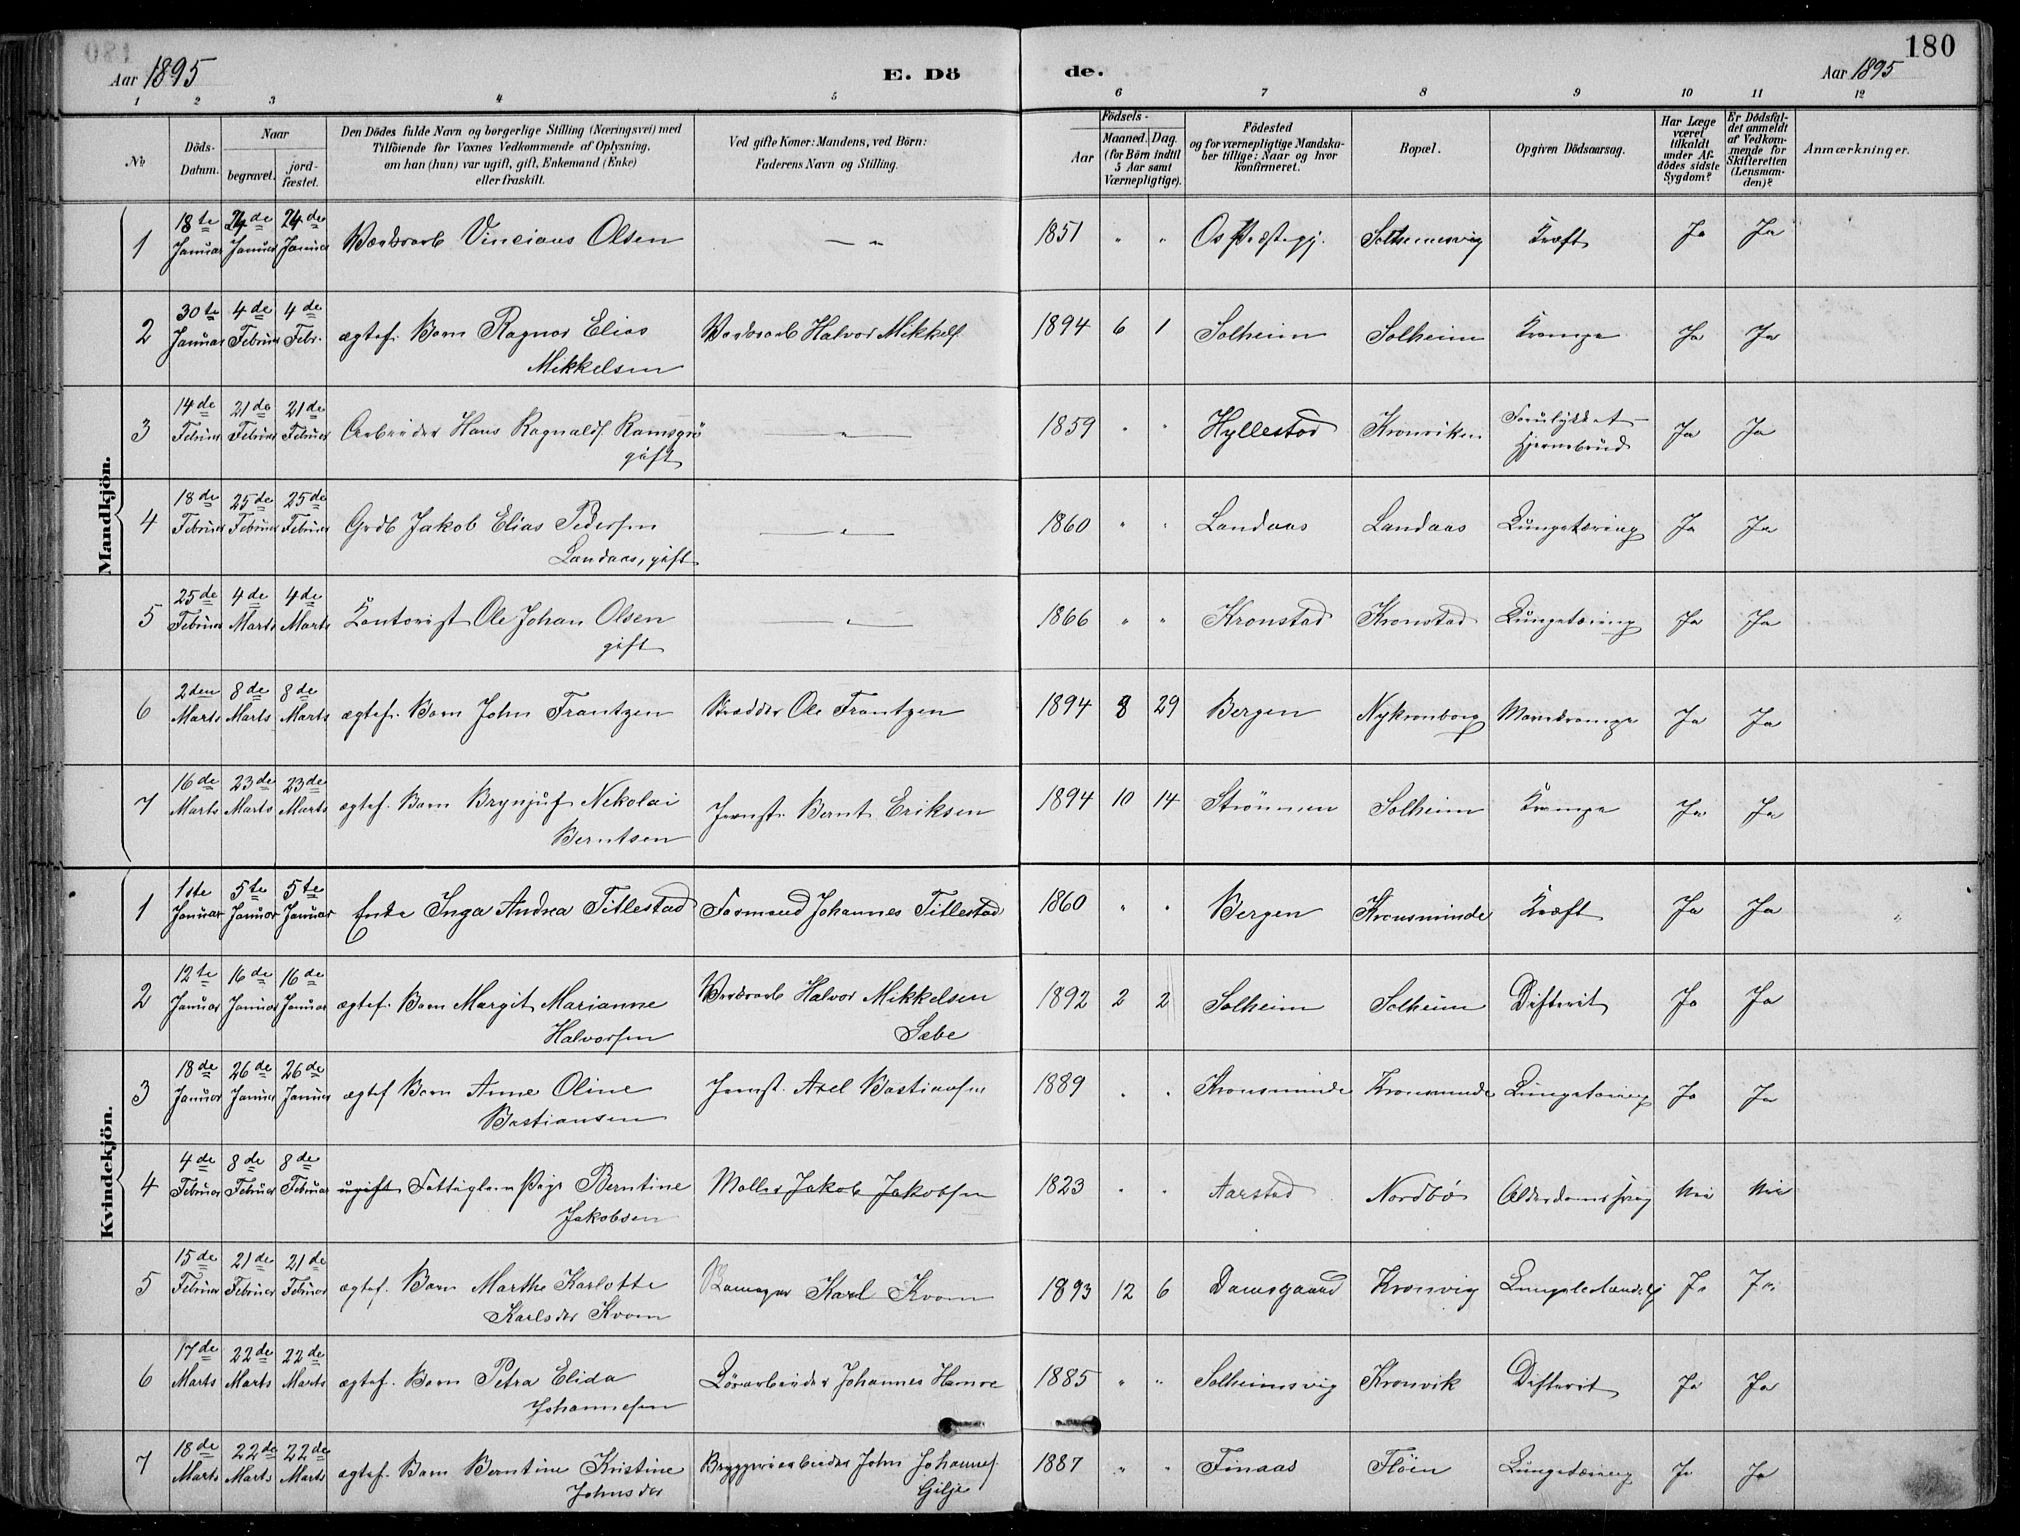 180
Aar 1895 E. Dö de. Aar 1895
1 2 3 4 5 6 7 8 9 10 11 12
No
Döds-Datum.
Naar
begravet.
jord-fæstet.
Den Dödes fulde Navn og borgerlige Stilling (Næringsvei) med
Tilföiende for Voxnes Vedkommende af Oplysning,
om han (hun) var ugift, gift, Enkemand (Enke)
eller fraskilt.
Ved gifte Koner: Mandens, ved Börn:
Faderens Navn og Stilling.
Födsels-
Aar
Maaned. Dag.
(for Börn indtil
5 Aar samt
Værnepligtige).
Födested
og for værnepligtige Mandska-
ber tillige: Naar og hvor
Konfirmeret.
Bopæl.
Opgiven Dödsaarsag.
Har Læge
været
tilkaldt
under Af-
dödes sidste
Sygdom?
Er Dödsfal-
det anmeldt
af Vedkom-
mende for
Skifteretten
(Lensman-
den)?
Anmærkninger.
Mandkjön.
1 18te Januar 24de Januar 24de Januar Olsen — " — 1851 " " Os Præstegj. Solheimsvig Kræft Ja Ja
2 30te Januar 4de Februar 4de Febr. ægtef. Barn Ragnar Elias
Mikkelsen Halvor Mikkels. 1894 6 1 Solheim Solheim Krampe Ja Ja
3 14de Februar 21de Februar 21de Februar Arbeider Hans Ragnalds. Ramsgrø
gift — " — 1859 " " Hyllestad Kronviken Forulykket
Hjernebrud Ja Ja
4 18de Februar 25de Februar 25de Februar Grdb Jakob Elias Pedersen
Landaas, gift — " — 1860 " " Landaas Landaas Lungetæring Ja Ja
5 25de Februar 4de Marts 4de Marts Kontorist Ole Johan Olsen
gift — " — 1866 " " Kronstad Kronstad Lungetæring Ja Ja
6 2den Marts 8de Marts 8de Marts ægtef. Barn John Frantzen Ole Frantzen 1894 8 29 Bergen Nykronborg Ja Ja
7 16de Marts 23de Marts 23de Marts ægtef. Barn Brynjulf Nekolai
Berntsen Jernst. Bernt Eriksen 1894 10 14 Strömmen Solheim Krampe Ja Ja
Kvindekjön.
1 1ste Januar 5te Januar 5te Januar Enke Inga Andrea Titlestad Formand Johannes Titlestad 1860 " " Bergen Kronsminde Kræft Ja Ja "
2 12te Januar 16de Januar 16de Januar ægtef. Barn Margit Marianne
Halvorsen Halvor Mikkelsen
Sæbe 1892 2 2 Solheim Solheim Difterit Ja Ja
3 18de Januar 26de Januar 26de Januar ægtef Barn Anne Oline
Bastiansen Jernst. Axel Bastiansen 1889 " " Kronsminde Kronsminde Lungetæring Ja Ja
4 4de Februar 8de Februar 8de Februar ugift Fattiglem Pige Berntine
Jakobsen Møller Jakob Jakobsen 1823 " " Aarstad Nordbø Alderdomssvag Nei Nei
5 15de Februar 21de Februar 21de Februar ægtef. Barn Marthe Karlotte
Karlsdar Kvam Karl Kvam 1893 12 6 Damsgaard Kronvig Ja Ja
6 17de Marts 22de Marts 22de Marts ægtef. Barn Petra Elida
Johannesen Johannes Hamre 1885 " " Solheimsvig Kronvik Difterit Ja Ja
7 18de Marts 22de Marts 22de Marts ægtef. Barn Berntine Kristine
Johnsdar Bryggeriarbeider John Johannes.
Gilje 1887 " " Finaas Fløen Lungetæring Ja Ja